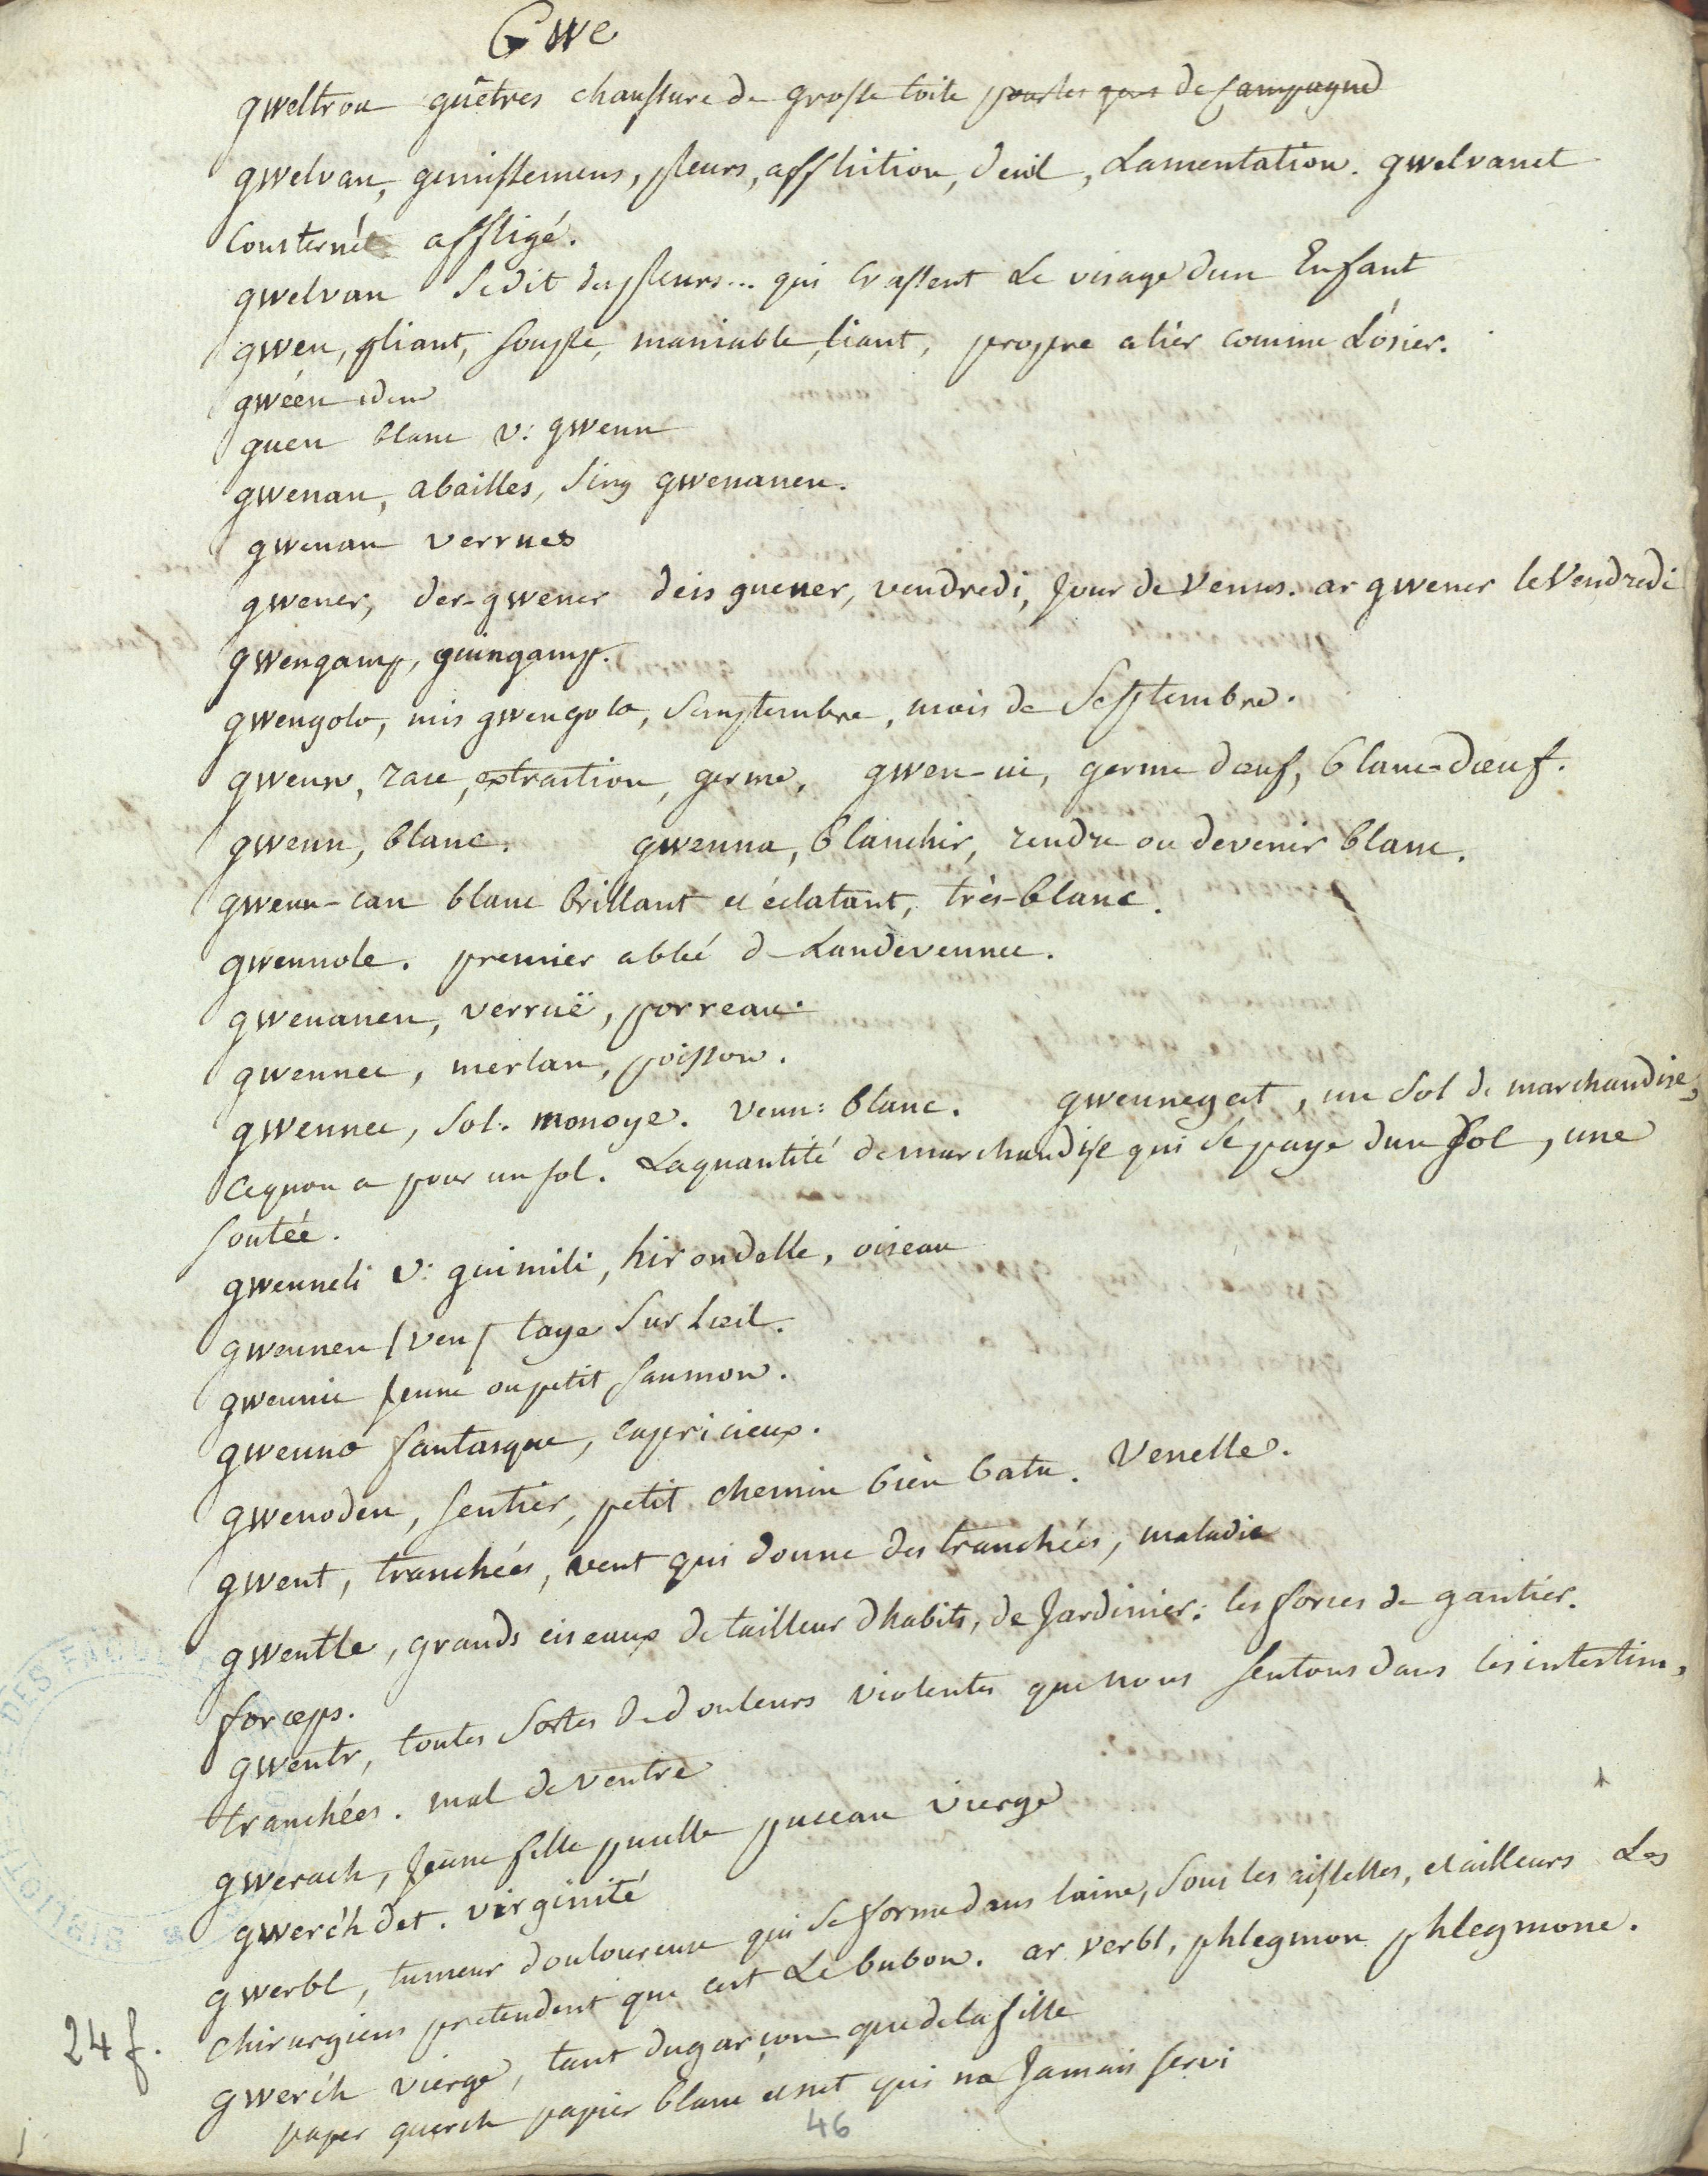 Gwe
gweltrou guêtres chaussure de grosse toile pour les gens de Campagne
gwelvan, gemissemens, pleurs, affliition, deuil, Lamentation. gwelvanet
Consterné affligé.
gwelvan Se dit des pleurs... qui crassent Le visage d'un Enfant
gwen, pliant, souple, maniable, liant, propre a lier comme L'ósier.
gwéen idem
guen blanc v: gwenn
gwenan, abailles, Sing gwenanen.
gwenan verrues
gwener, der-gwener deis guener, vendredi, Jour de Venus. ar gwener le Vendredi
gwengamp, guingamp.
gwengolo, mis gwengolo, Semptembre, mois de Septembre.
gwenn, race, extraction, germe, gwen-ui, germe dœuf, blanc-dœuf.
gwenn, blanc. gwenna, blanchir, rendre ou devenir blanc.
gwenn-can blanc brillant et éclatant, très-blanc.
gwennole. premier abbé de Landevennec.
gwenanen, verruë, porreau.
gwennec, merlan, poisson.
gwennec, Sol. monoye. venn: blanc. gwennegat, un Sol de marchandise,
Ce quon a pour un sol. La quantité de marchandise qui se paye d'un Sol, une
soutée.
gwenneli v: guimili, hirondelle, oiseau
gwennen /ven/ taye Sur L'œil.
gwennic Jeune ou petit Saumon.
gwenno fantasque, capricieux.
gwenoden, sentier, petit chemin bien batu. Venelle.
gwent, tranchées, vent qui donne des tranchées, maladie
gwentle, grands ciseaux de tailleur d'habits, de Jardinier: les forces de gantier.
forceps.
gwentr, toutes Sortes de douleurs violentes que nous Sentons dans les intestins,
tranchées. mal de ventre
gwerach, Jeune fille pucelle puceau vierge
gwerc'hdet. virginité
gwerbl, tumeur douloureuse qui se forme dans l'aine, sous les aisselles, et ailleurs Les
chirurgiens pretendent que cest Le bubon. ar verbl, phlegmon phlegmone.
gwerc'h vierge, tant du garçon que de la fille
paper guerch papier blanc et net qui na Jamais servi
24 f.
46